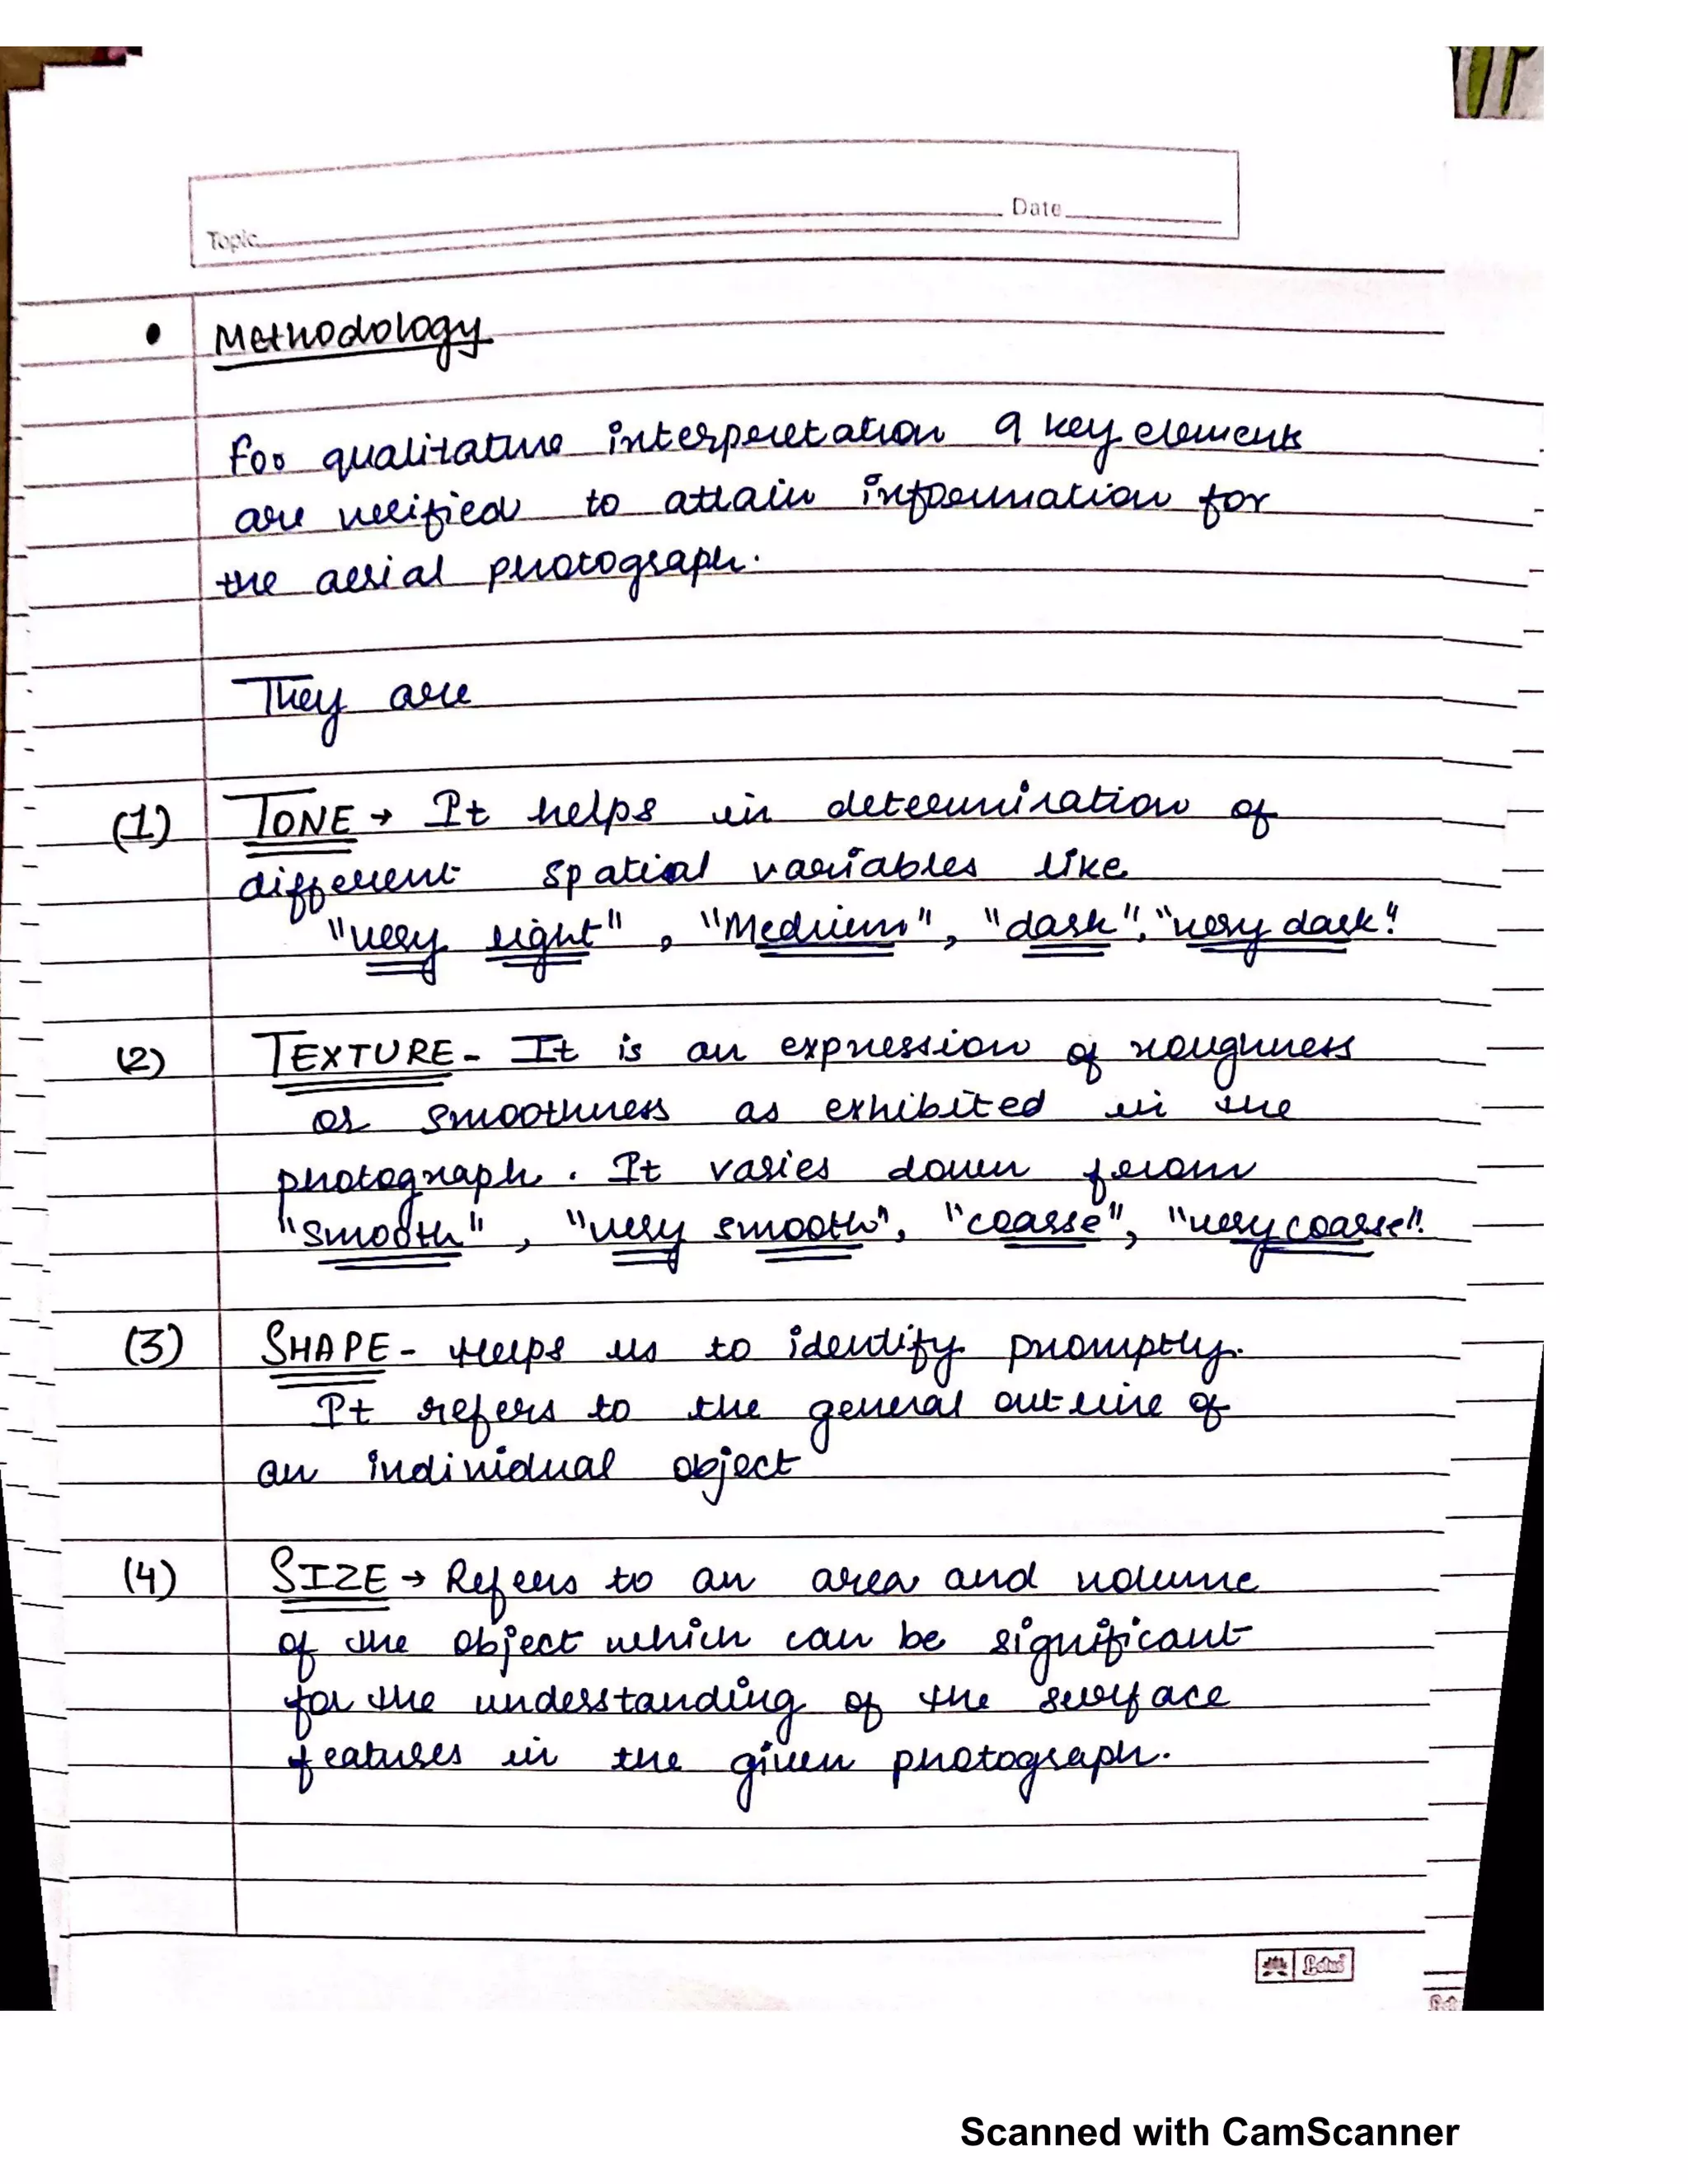 Topic Date
• Methodology
For qualitative interpretation 9 key elements
are verified to attain information for
the aerial photograph.
They are
(1) TONE → It helps in determination of
different spatial variables like
"very light", "Medium", "dark", "very dark".
(2) TEXTURE - It is an expression of roughness
or smoothness as exhibited in the
photograph. It varies down from
"smooth", "very smooth", "coarse", "very coarse".
(3) SHAPE - Helps us to identify promptly.
It refers to the general outline of
an individual object
(4) SIZE → Refers to an area and volume
of the object which can be significant
for the understanding of the surface
features in the given photograph.
Lotus
Scanned with CamScanner